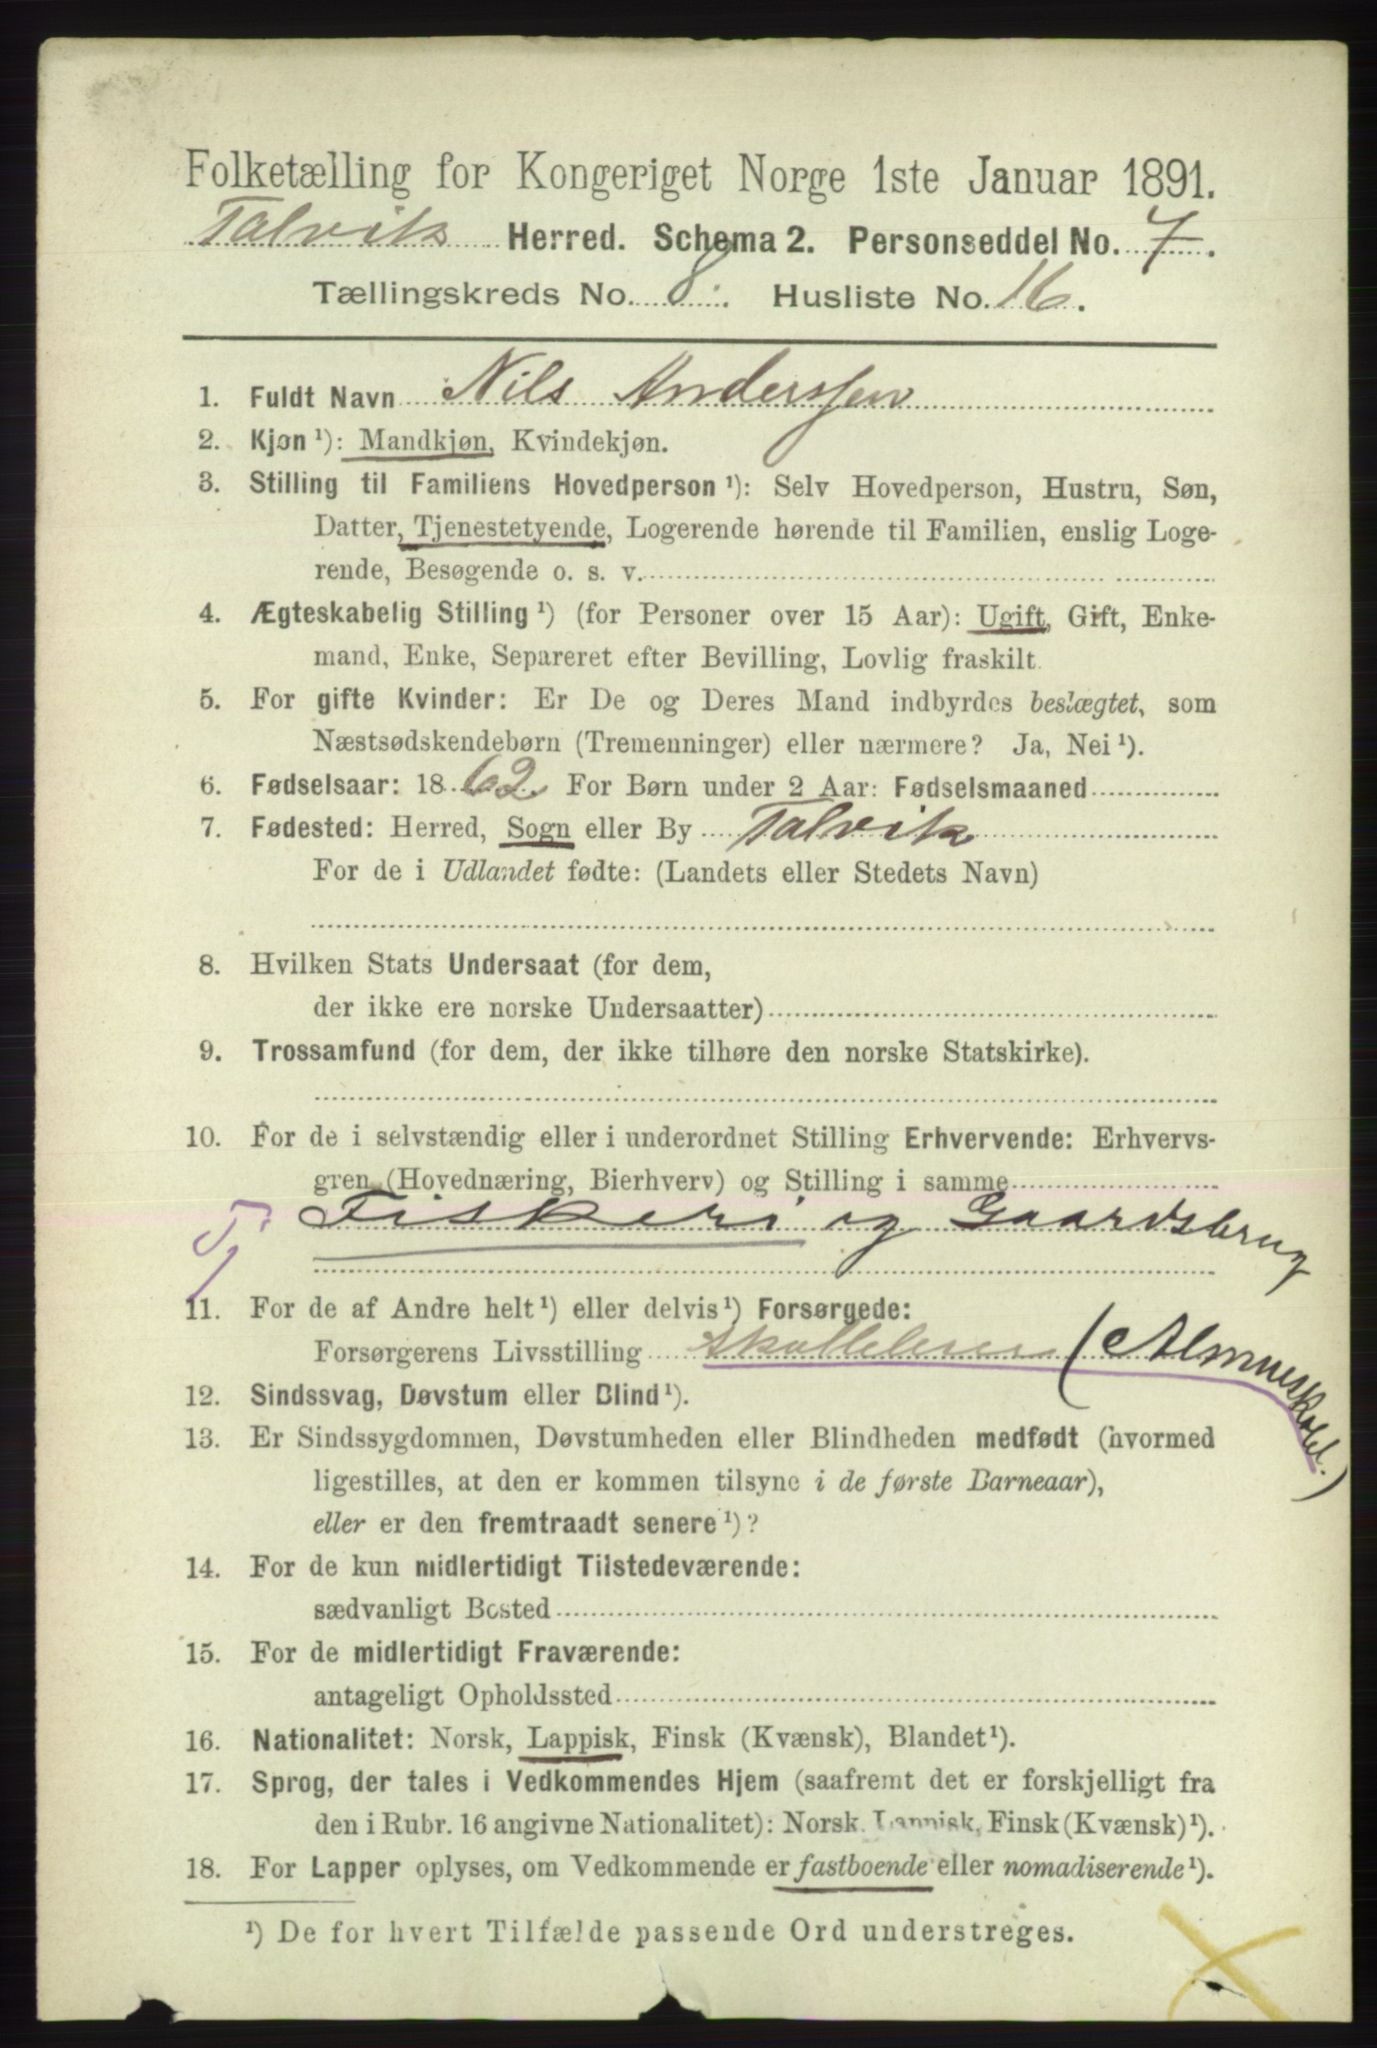 Folketælling for Kongeriget Norge 1ste Januar 1891.
Talvik Herred. Schema 2. Personseddel No. 7.
Tællingskreds No. 8. Husliste No. 16.
1. Fuldt Navn Nils Anderssen
2. Kjøn ¹): Mandkjøn, Kvindekjøn.
3. Stilling til Familiens Hovedperson ¹): Selv Hovedperson, Hustru, Søn,
Datter, Tjenestetyende, Logerende hørende til Familien, enslig Loge-
rende, Besøgende o. s. v.
4. Ægteskabelig Stilling ¹) (for Personer over 15 Aar): Ugift, Gift, Enke-
mand, Enke, Separeret efter Bevilling, Lovlig fraskilt.
5. For gifte Kvinder: Er De og Deres Mand indbyrdes beslægtet, som
Næstsødskendebørn (Tremenninger) eller nærmere? Ja, Nei ¹).
6. Fødselsaar: 1862. For Børn under 2 Aar: Fødselsmaaned
7. Fødested: Herred, Sogn eller By Talvik
For de i Udlandet fødte: (Landets eller Stedets Navn)
8. Hvilken Stats Undersaat (for dem,
der ikke ere norske Undersaatter)
9. Trossamfund (for dem, der ikke tilhøre den norske Statskirke).
10. For de i selvstændig eller i underordnet Stilling Erhvervende: Erhvervs-
gren (Hovednæring, Bierhverv) og Stilling i samme
Tj Fiskeri og Gaardsbrug
11. For de af Andre helt ¹) eller delvis ¹) Forsørgede:
Forsørgerens Livsstilling
12. Sindssvag, Døvstum eller Blind ¹).
13. Er Sindssygdommen, Døvstumheden eller Blindheden medfødt (hvormed
ligestilles, at den er kommen tilsyne i de første Barneaar),
eller er den fremtraadt senere ¹)?
14. For de kun midlertidigt Tilstedeværende:
sædvanligt Bosted
15. For de midlertidigt Fraværende:
antageligt Opholdssted
16. Nationalitet: Norsk, Lappisk, Finsk (Kvænsk), Blandet ¹).
17. Sprog, der tales i Vedkommendes Hjem (saafremt det er forskjelligt fra
den i Rubr. 16 angivne Nationalitet): Norsk, Lappisk, Finsk (Kvænsk) ¹).
18. For Lapper oplyses, om Vedkommende er fastboende eller nomadiserende ¹).
¹) De for hvert Tilfælde passende Ord understreges.